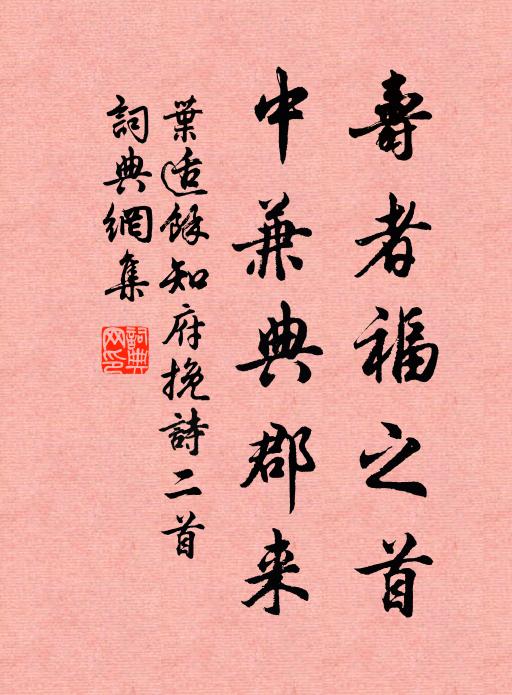 壽者福之首
中兼典郡来
葉适餘知府挽詩二首
詞典網集
詞典网印